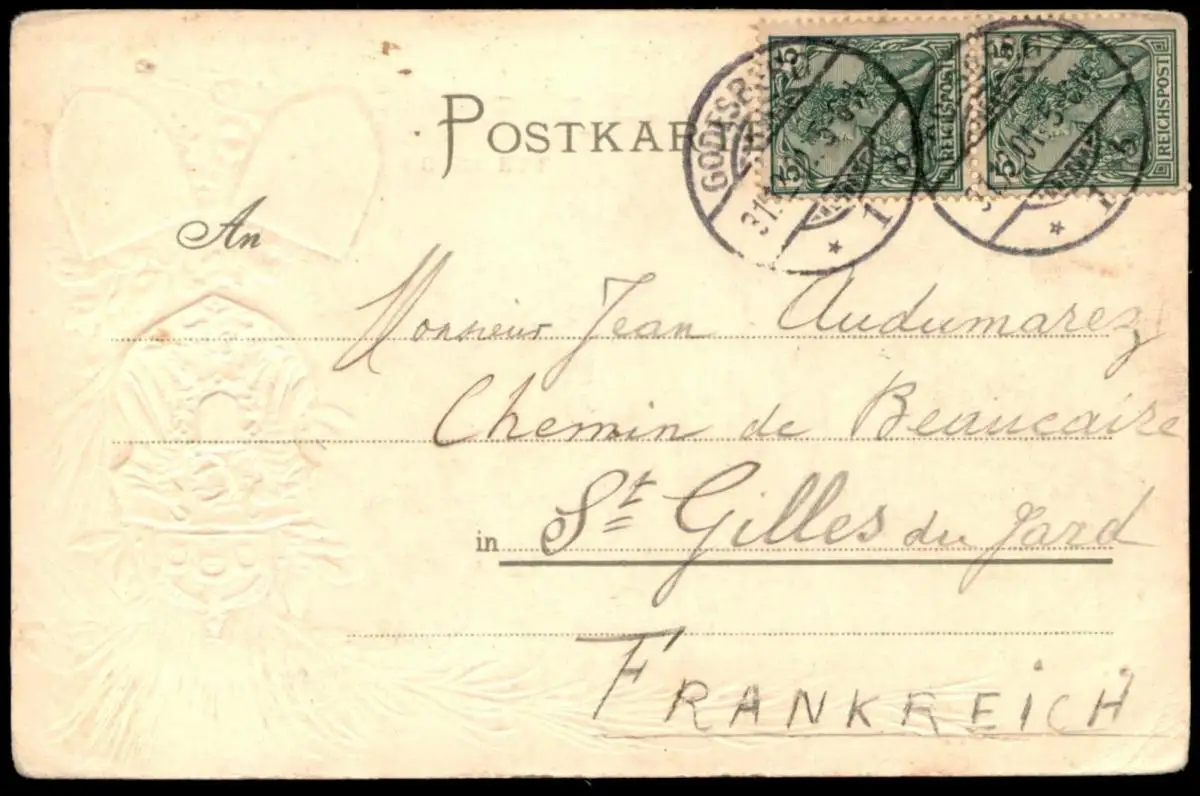 POSTKARTE
5 REICHSPOST 5
5 REICHSPOST 5
GODESBERG
1 b
An
Monsieur Jean Audumarez
Chemin de Beaucaire
in St Gilles du Gard
FRANKREICH